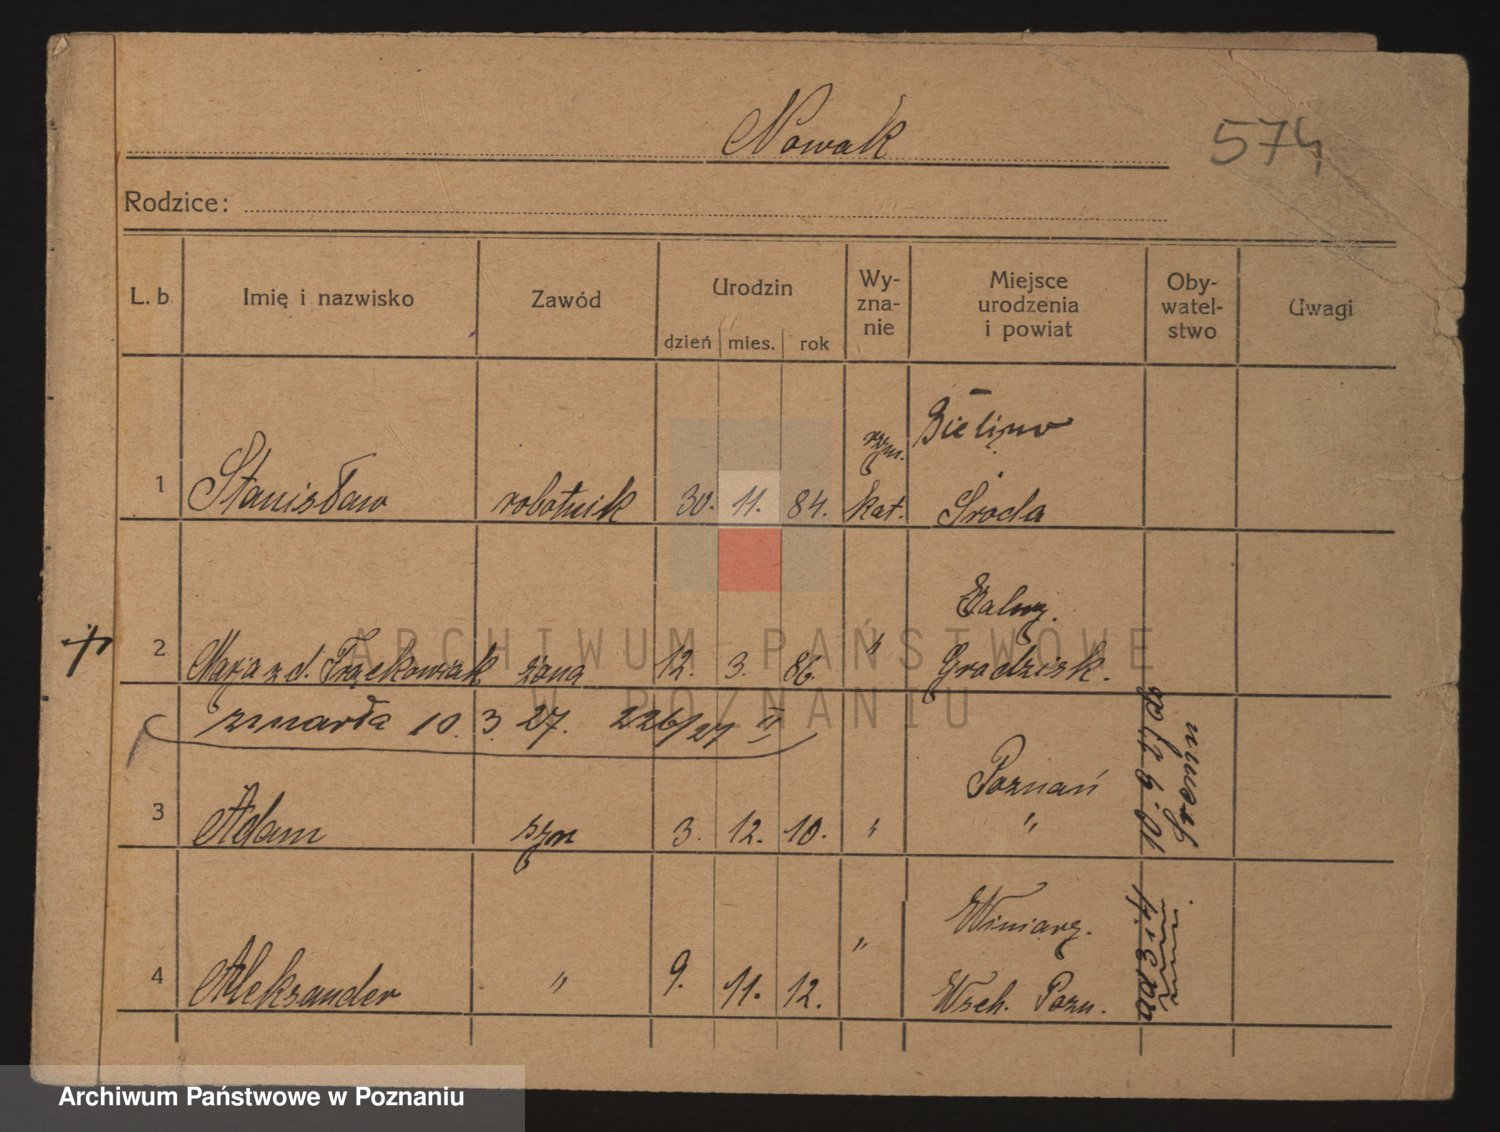 Nowak
574
Rodzice:
L. b. Imię i nazwisko Zawód Urodzin dzień mies. rok Wy-zna-nie Miejsce urodzenia i powiat Oby-watel-stwo Uwagi
Bielino
1 Stanisław robotnik 30. 11. 84. rzym. kat. Środa
2 Marja z d. Frąckowiak żona 12. 3. 86. " Grodzisk.
zmarła 10. 3. 27. 226/27 II
Poznań
3 Adam syn 3. 12. 10. " "
10. 9 27 do Śremu
Winiary.
4 Aleksander " 9. 11. 12. " Wsch. Pozn.
ARCHIWUM PAŃSTWOWE
W POZNANIU
Archiwum Państwowe w Poznaniu